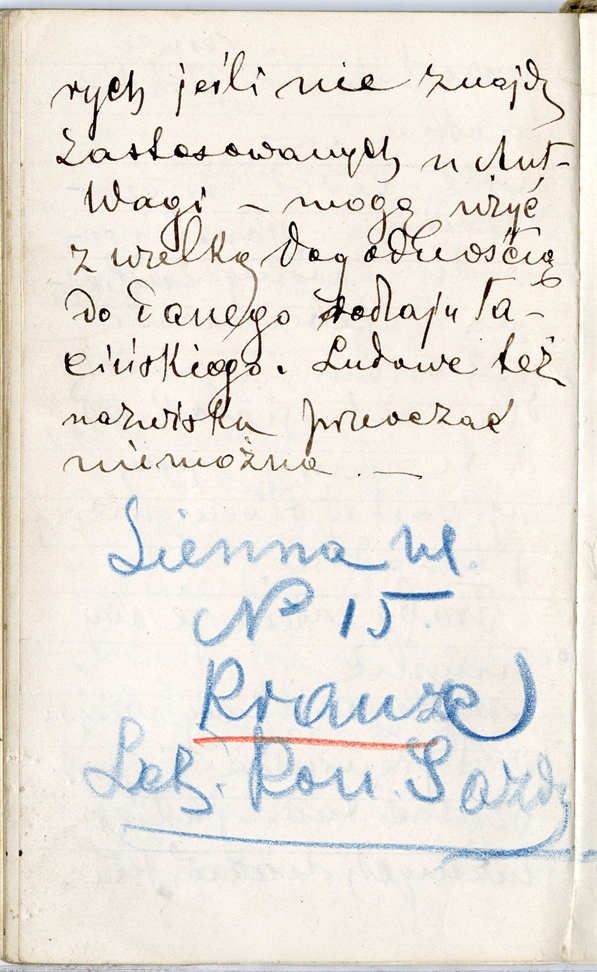 rych jeśli nie znajdę
zastosowanych u Ant-
Wagi – mogę użyć
z wielką dogodnością
do danego rodzaju ła-
cińskiego. Ludowe też
nazwiska
niemożna. —
Sienna ul.
№ 15
Krauze
Leb. Kon.